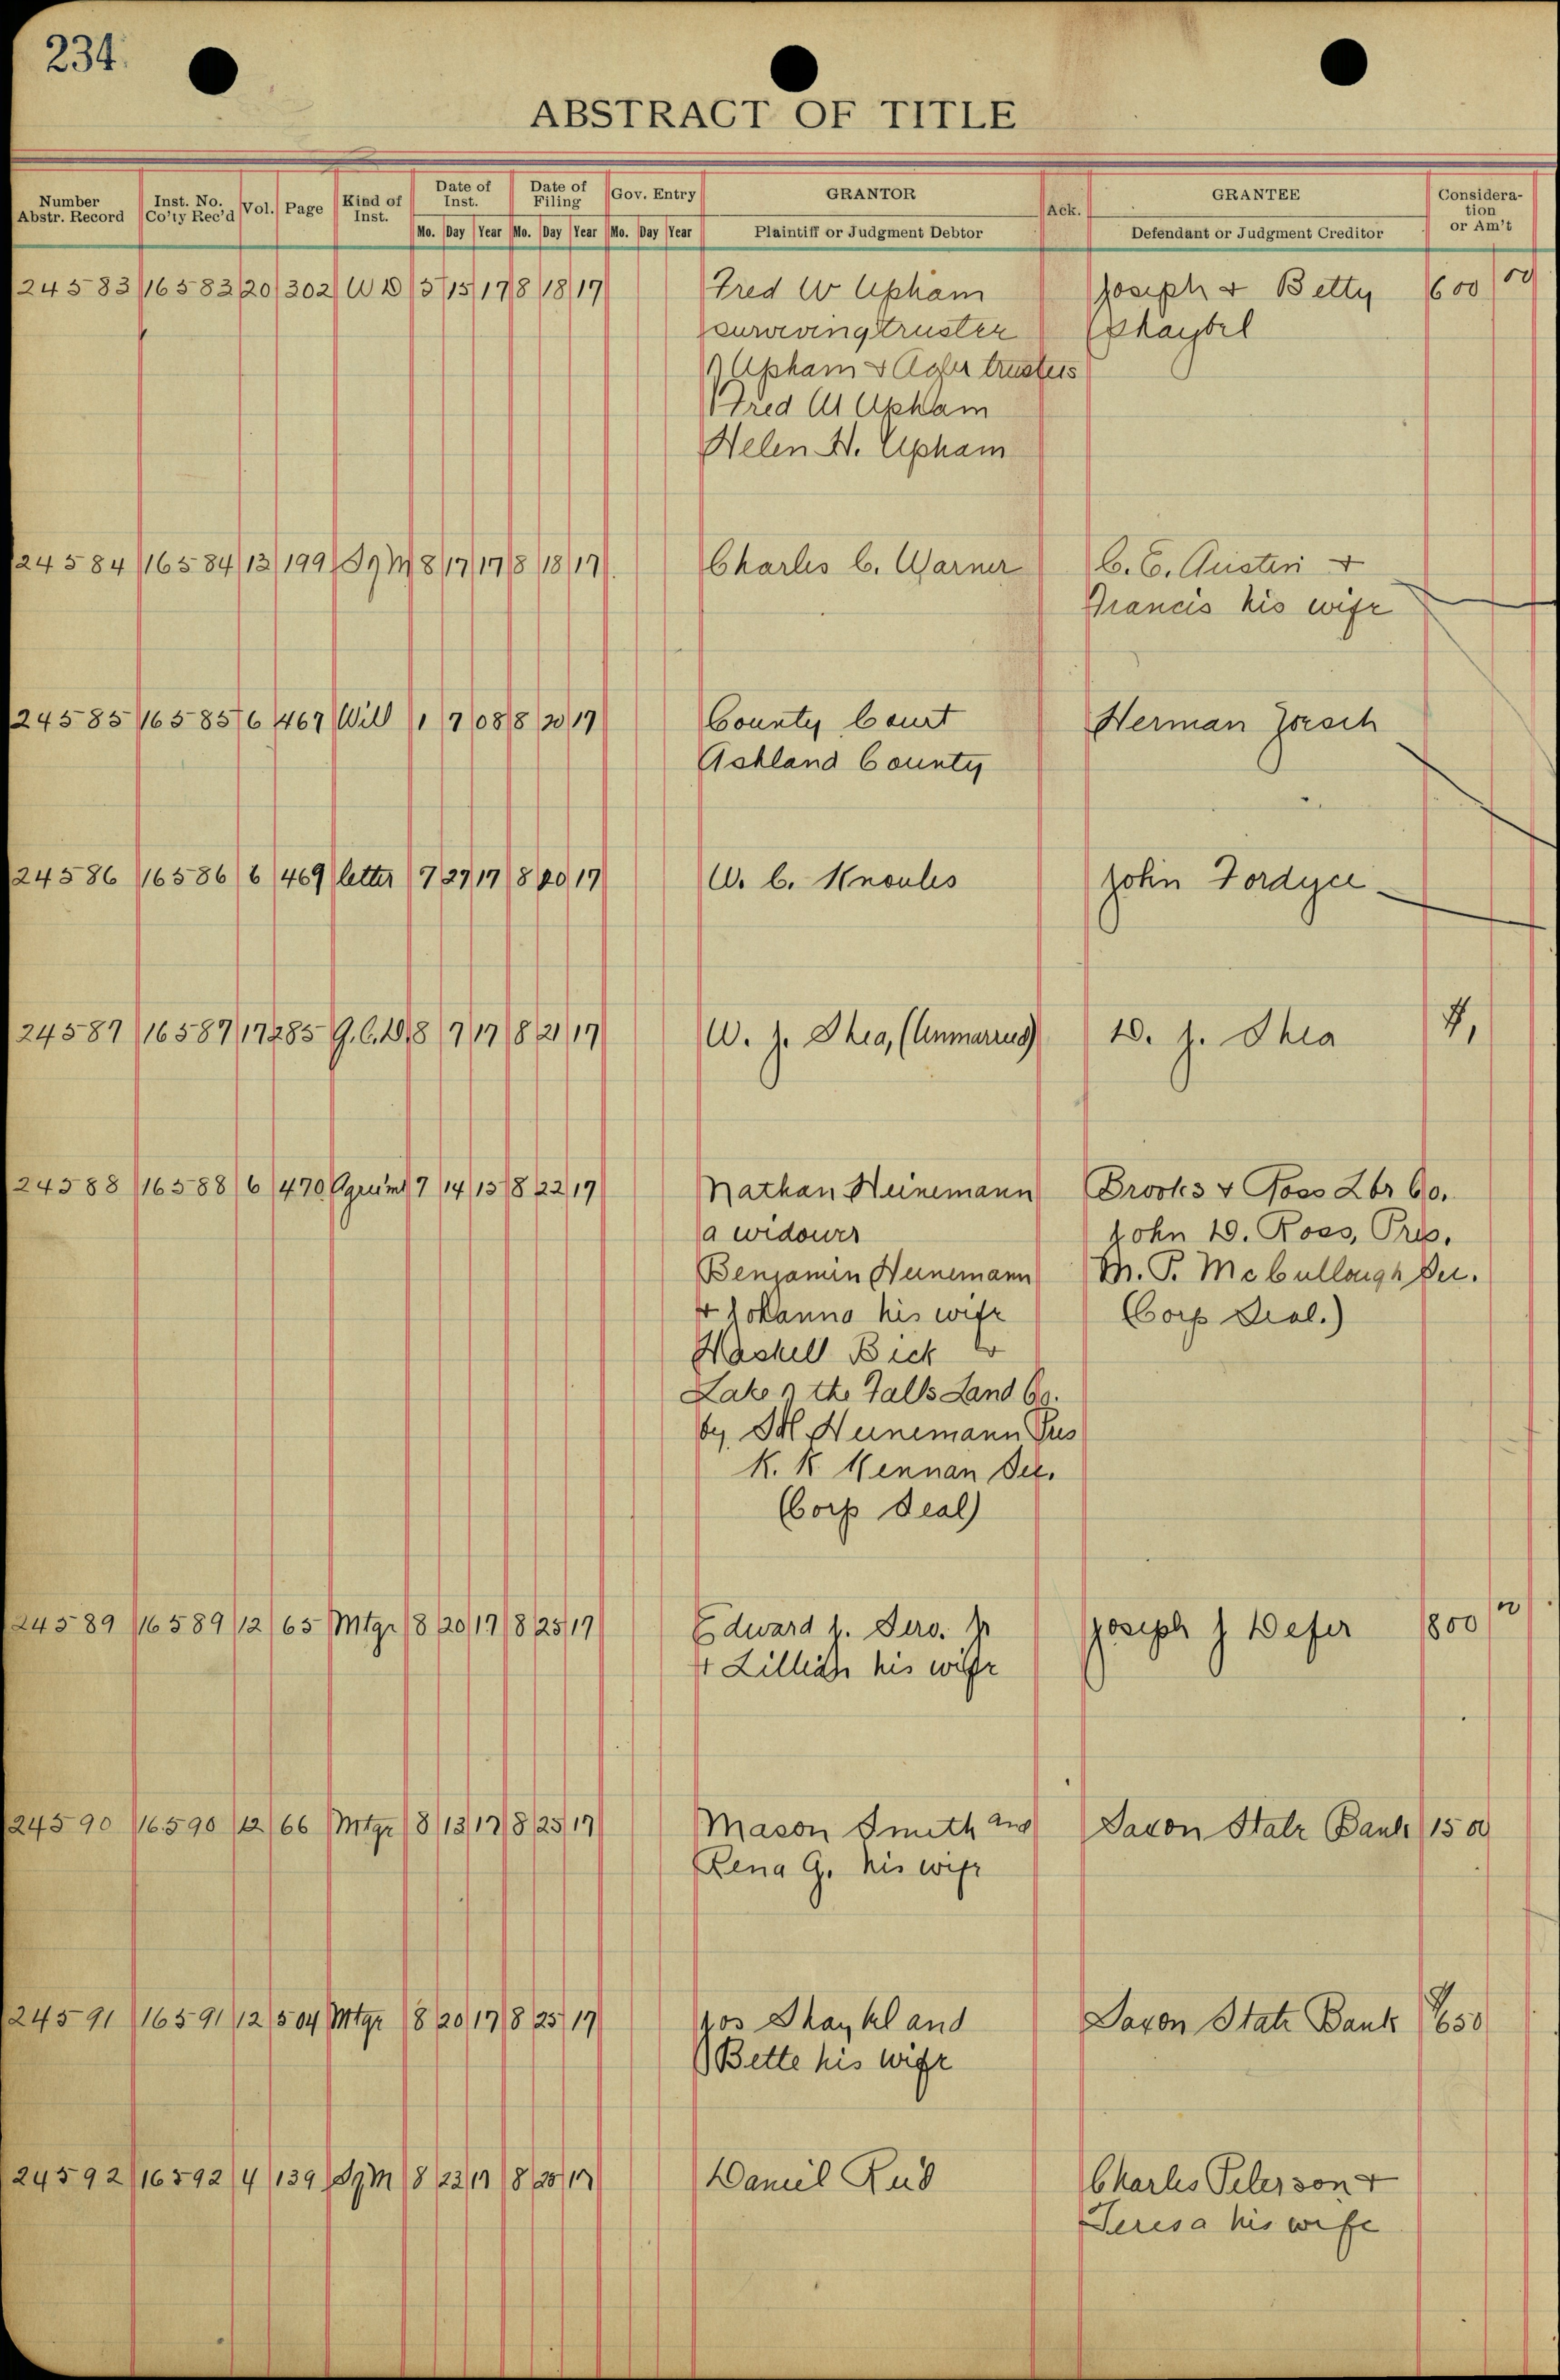 234.
ABSTRACT OF TITLE
Number Abstr. Record Inst. No. Co'ty Rec'd Vol. Page Kind of Inst. Date of Inst. Date of Filing Gov. Entry GRANTOR Ack. GRANTEE Consideration or Am't
Mo. Day Year Mo. Day Year Mo. Day Year Plaintiff or Judgment Debtor Defendant or Judgment Creditor
24583 16583 20 302 W D 5 15 17 8 18 17 Fred W Upham Joseph & Betty 600 00
surviving trustee
Upham & Agler trustees
Fred W Upham
Helen H. Upham
24584 16584 13 199 Sgm 8 17 17 8 18 17 Charles C. Warner C. C. Austin &
Francis his wife
24585 16585 6 467 Will 1 7 08 8 20 17 County Court Herman
Ashland County
24586 16586 6 469 letter 7 27 17 8 20 17 W. C. Knoules John Fordyce
24587 16587 17 285 Q.C.D. 8 7 17 8 21 17 W. J. Shea, (Unmarried) D. J. Shea 1,
24588 16588 6 470 Agrumt 7 14 15 8 22 17 Nathan Heinemann Brooks & Ross Lbr Co.
a widower John D. Ross, Pres.
Benjamin Heinemann M. P. McCullough Sec.
& Johanna his wife (Corp Seal.)
Haskell Bick &
Lake of the Falls Land Co.
by Heinemann Pres
K. K Kennan Sec.
(Corp Seal)
24589 16589 12 65 Mtge 8 20 17 8 25 17 Edward J. Jr Joseph J Defer 1800
& Lillian his wife
24590 16590 12 66 Mtge 8 13 17 8 25 17 Mason Smith and Saxon State Bank 150
Rena G. his wife
24591 16591 12 504 Mtge 8 20 17 8 25 17 Jos and Saxon State Bank 650
Bette his wife
24592 16592 4 139 Sgm 8 23 17 8 25 17 Daniel Rud Charles Peterson &
Teresa his wife